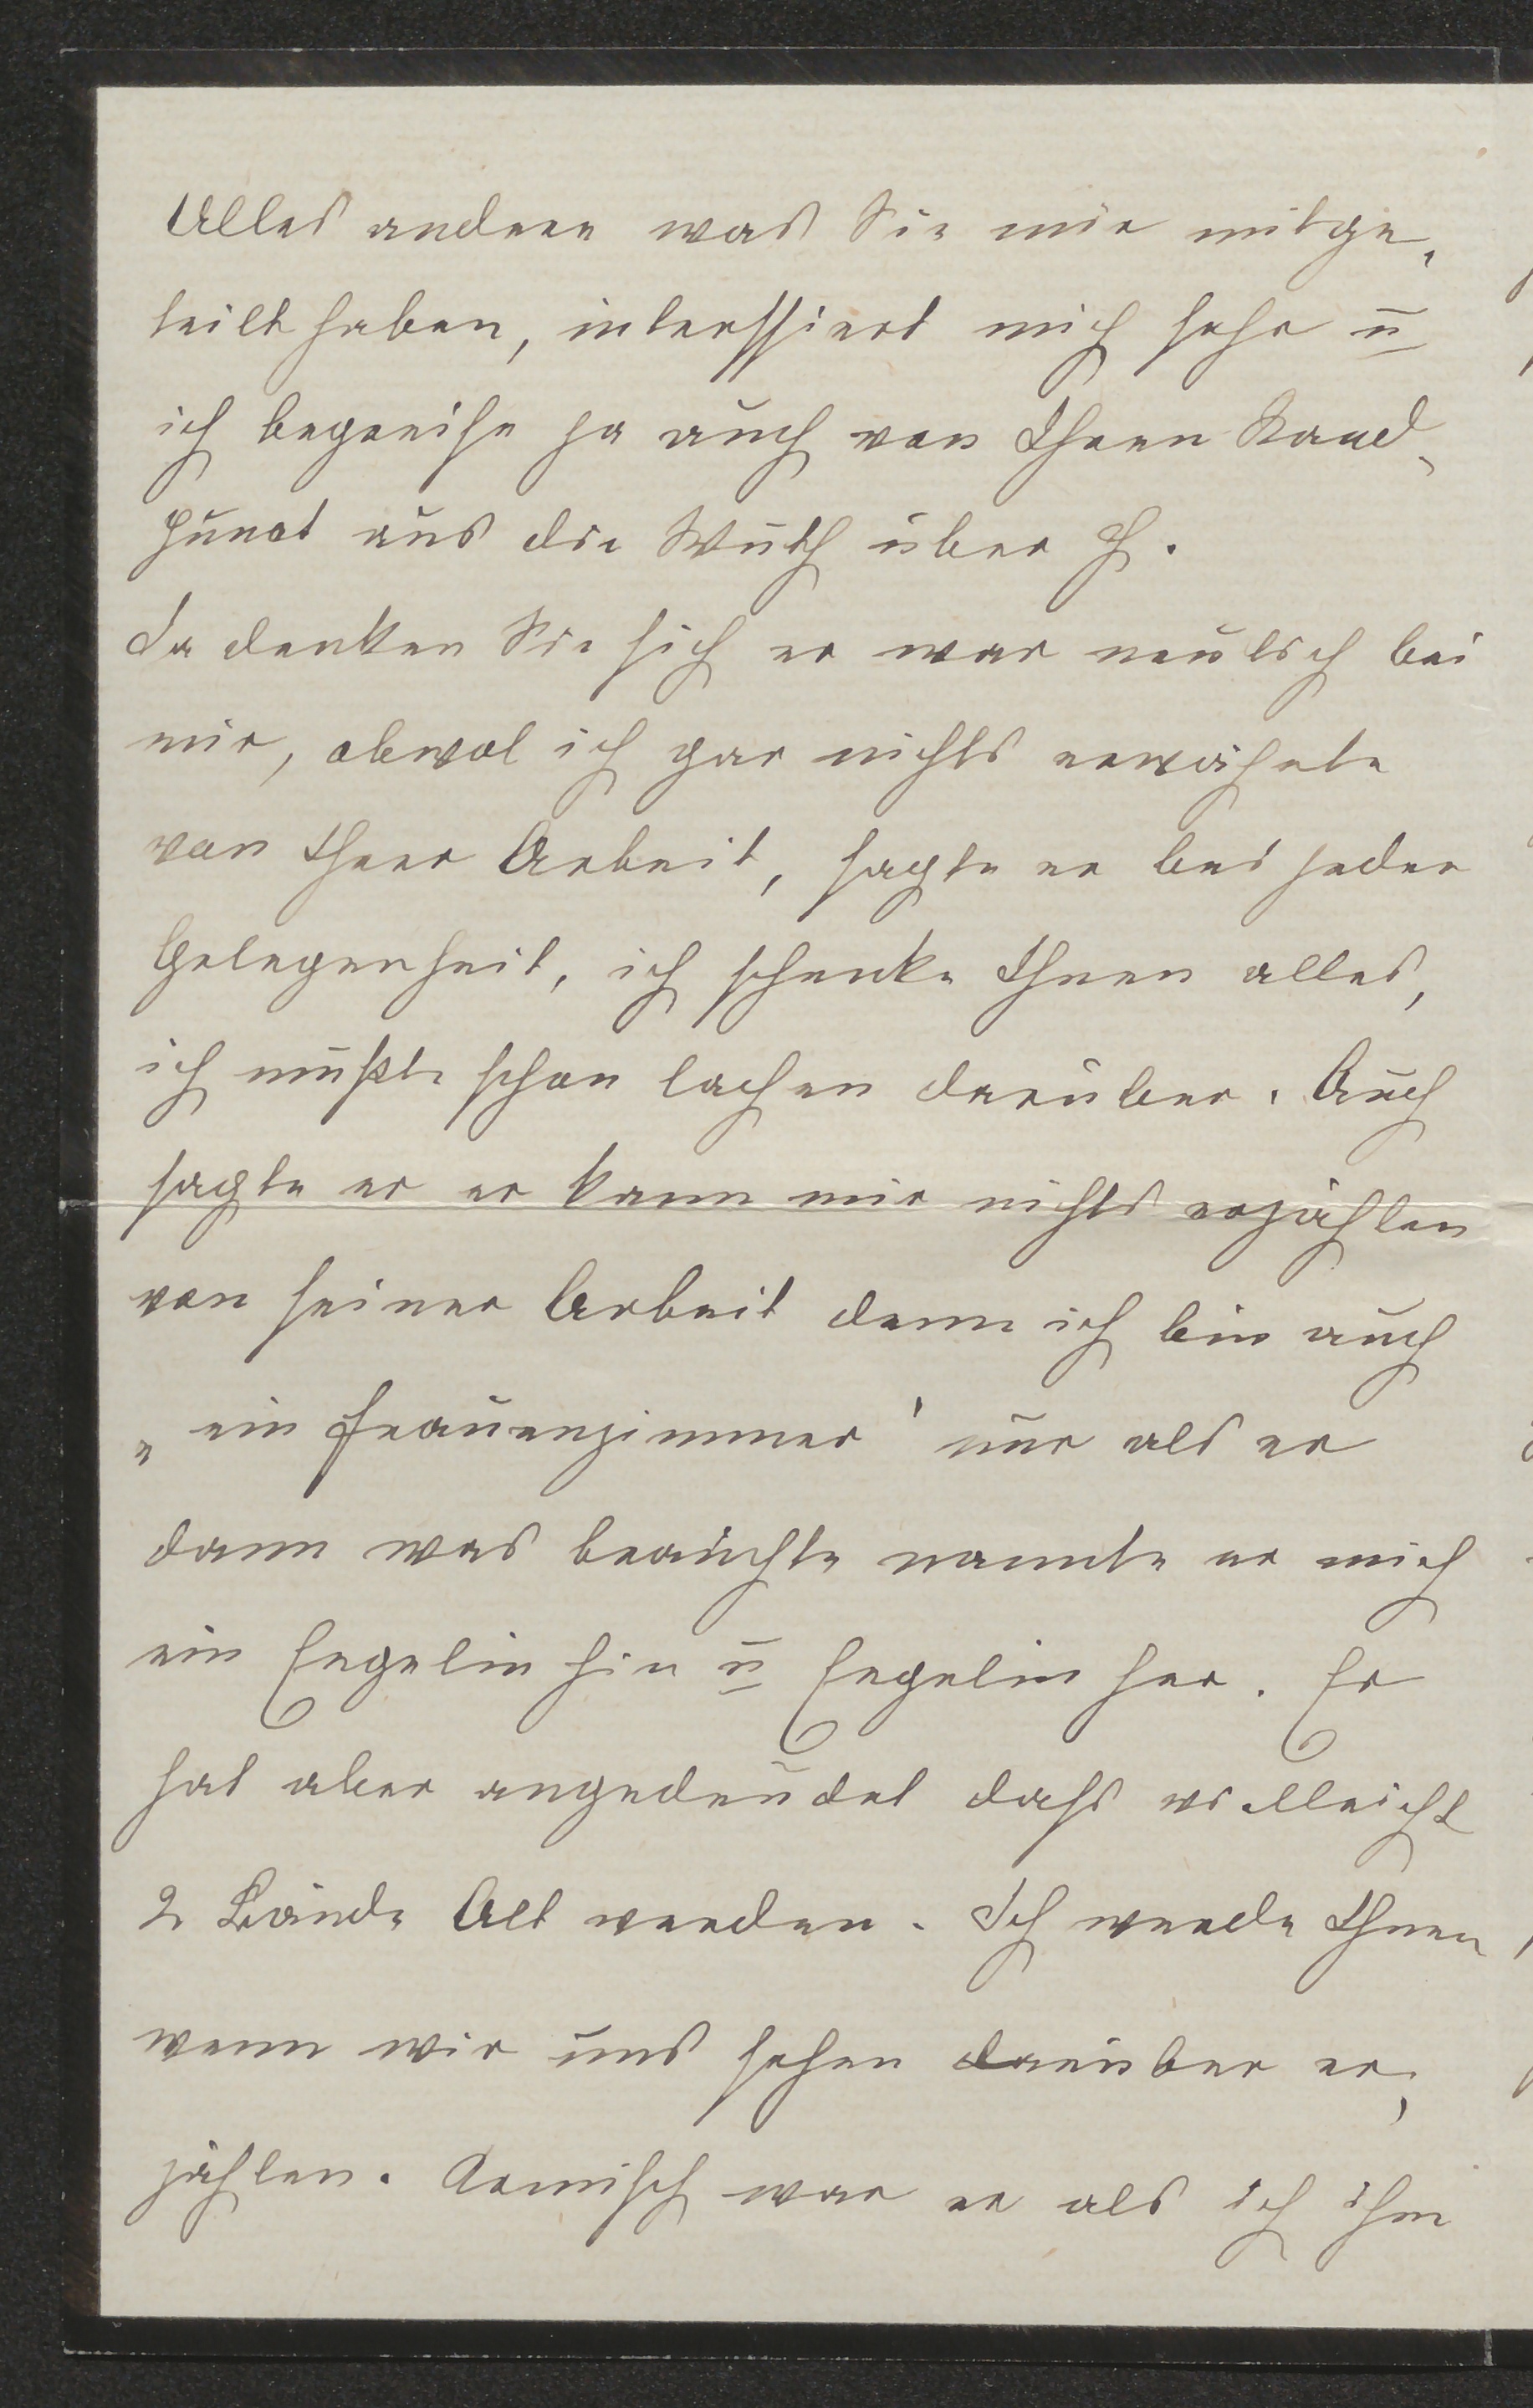 Alles andere was Sie mir mitge-
teilt haben, interssiert mich sehr u
ich begreife ja auch von Ihren Stand-
punct aus die Wuth über H.
Ja denken Sie sich er war neulich bei
mir, obwol ich gar nichts erwähnte
von Ihrer Arbeit, sagte er bei jeder
Gelegenheit, ich schenke Ihnen alles,
ich mußte schon lachen darüber. Auch
sagte er er kann mir nichts erzählen
von seiner Arbeit denn ich bin auch
„ein Frauenzimmer' nur als er
dann was brauchte nannte er mich
ein Engelin hin u Engelin her. Er
hat aber angedeudet dass vielleicht
2 Bände Alt werden. Ich werde Ihnen
wenn wir uns sehen darüber er-
zählen. Komisch war er als ich ihm